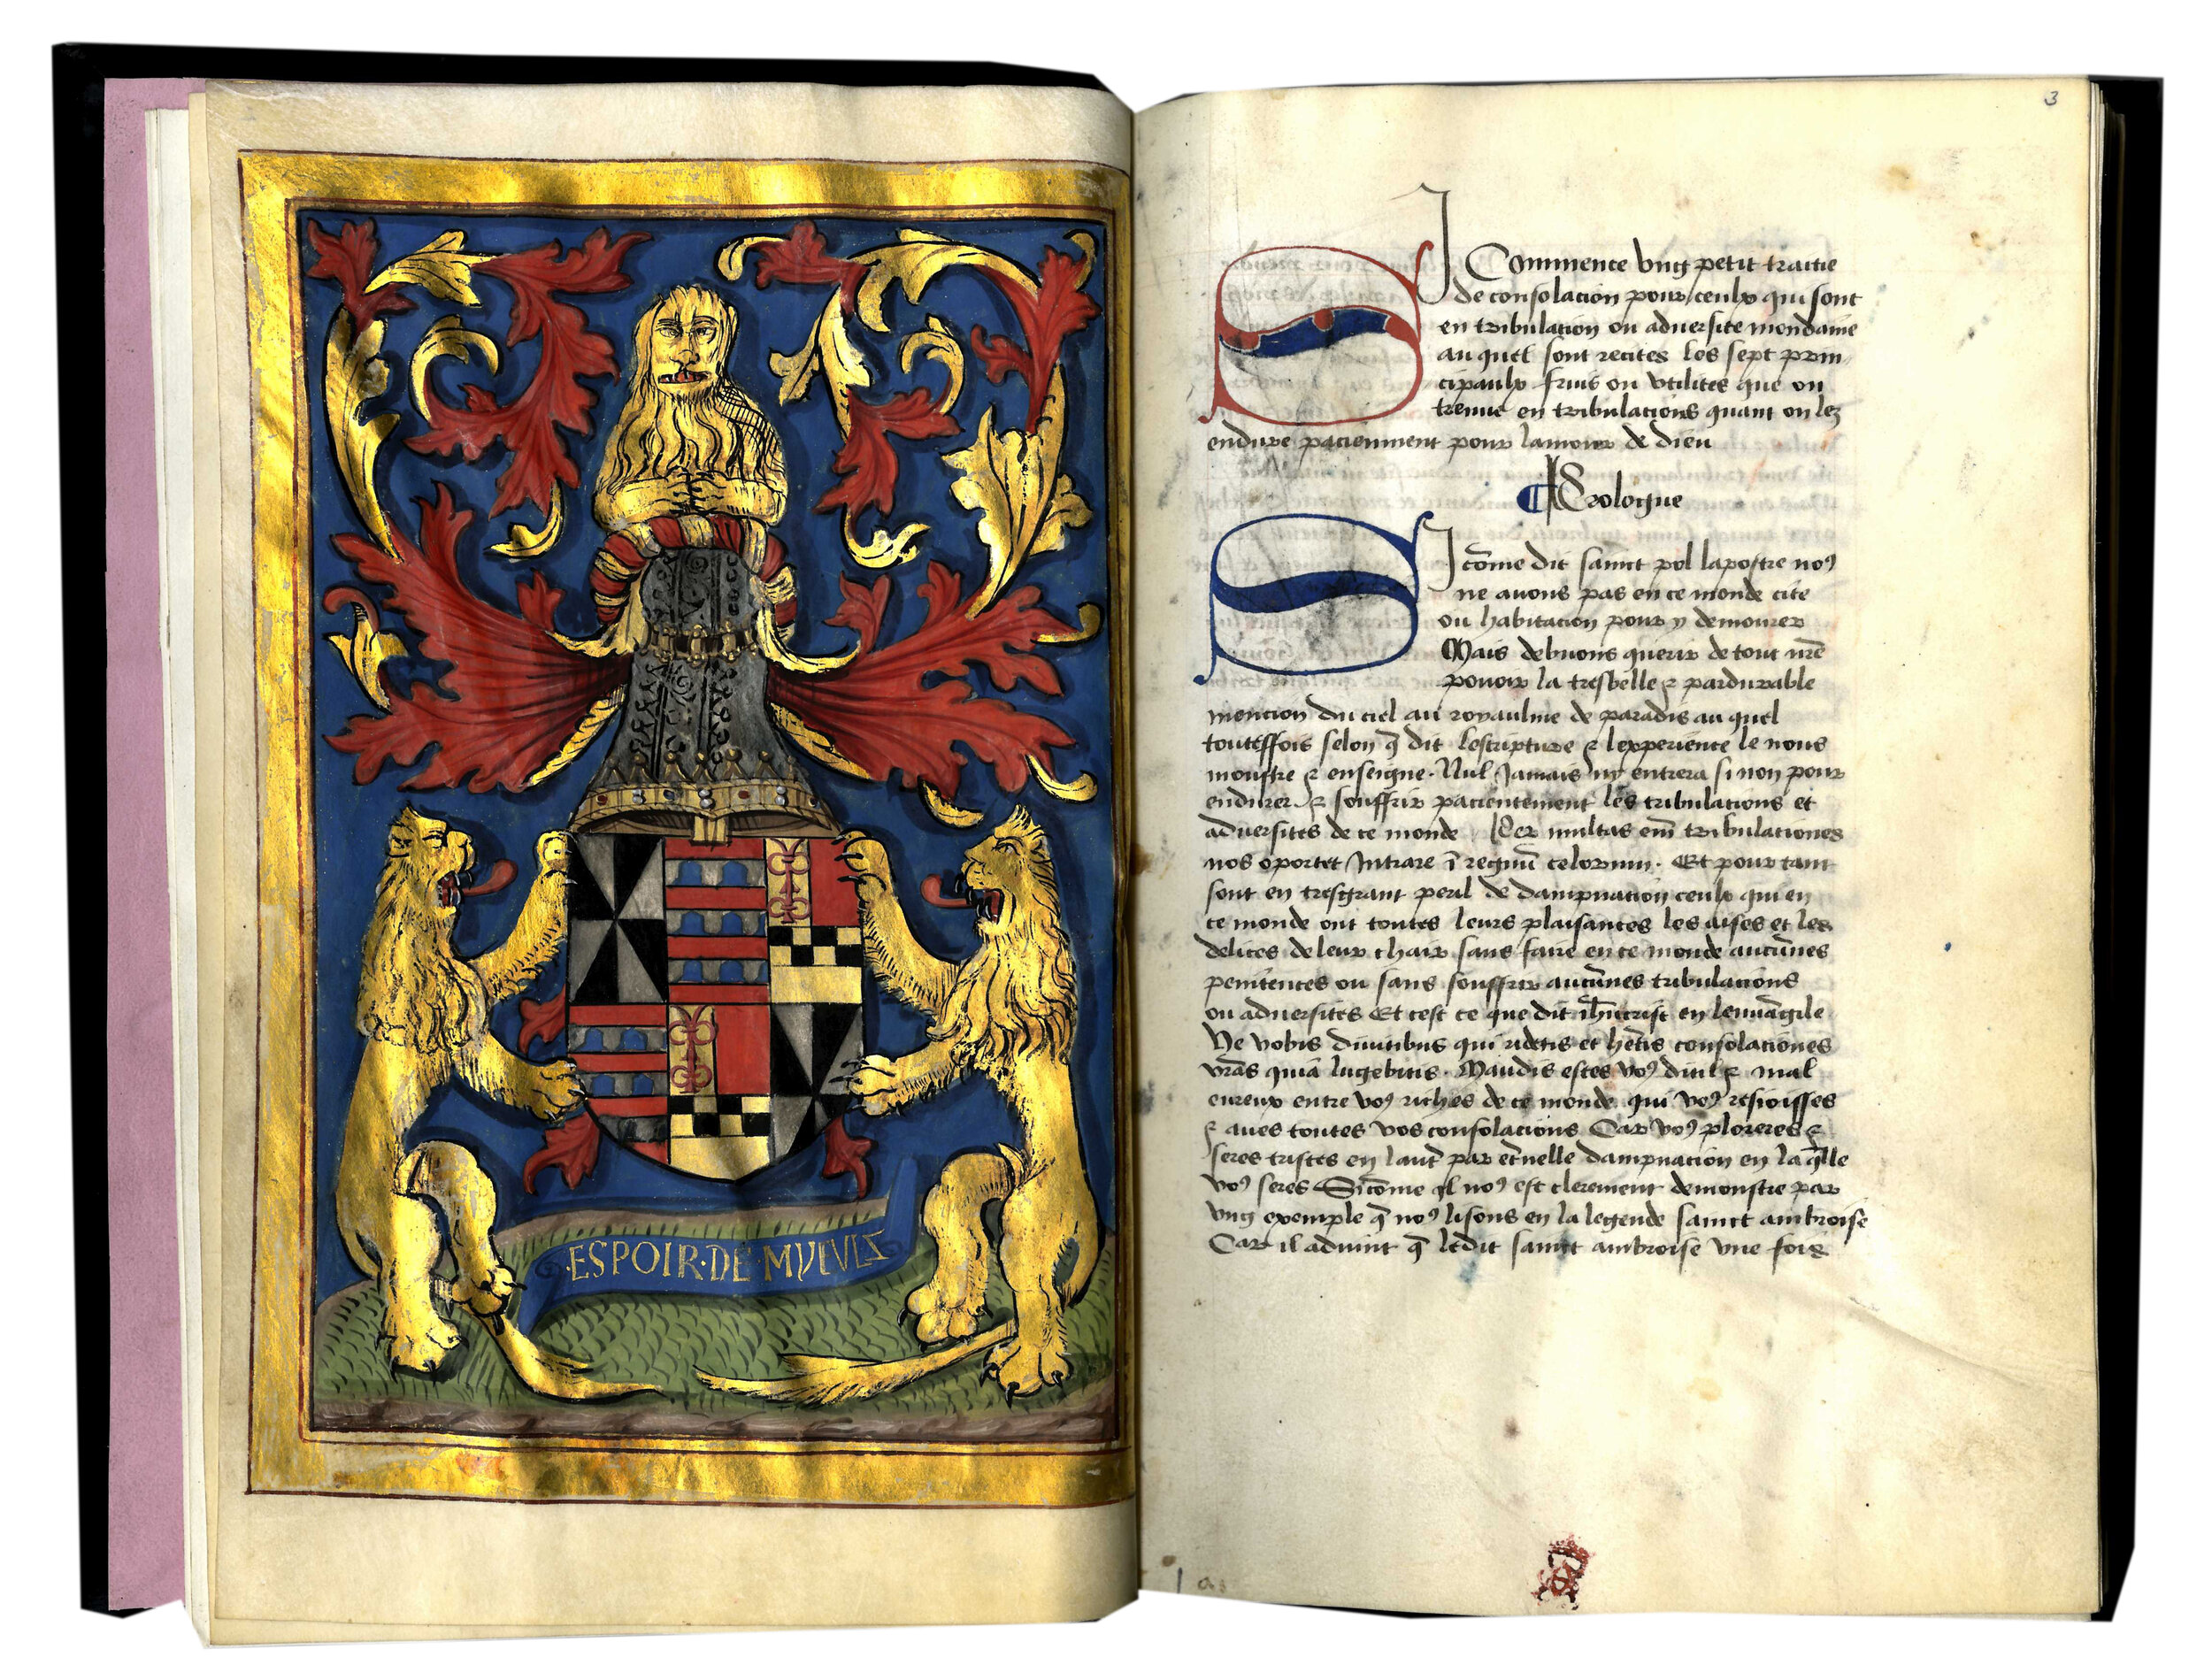 ·ESPOIR·DE·MYEVLZ
3
SI Commence vng petit traitie
de consolacion pour ceulx qui sont
en tribulacion ou aduersite mondaine
au quel sont recites les sept prin
cipaulx fruis ou vtilites que on
treuue en tribulacions quant on lez
endure paciemment pour lamour de dieu
¶ Prologue
SI cōme dit sainct pol lapostre noꝯ
ne auons pas en ce monde cite
ou habitacion pour y demourer
Mais debuons querir de tout nrē
pouoir la tresbelle ⁊ pardurable
mencion du ciel au royaulme de paradis au quel
touteffois selon q̄ dit lescripture ⁊ lexperience le nous
monstre ⁊ enseigne. Nul Jamais ny entrera si non pour
endurer ⁊ souffrir pacientement les tribulations et
aduersites de ce monde Per multas em̄ tribulationes
nos oportet Intrare ī regnū celorum. Et pour tant
sont en tresgrant peril de dampnation ceulx qui en
ce monde ont toutes leurs plaisances les aises et les
delices de leur chair sans faire en ce monde aucūnes
penitences ou sans souffrir aucūnes tribulations
ou aduersites Et cest ce que dit ih̄ucrist en leuuāgile
Ve vobis diuitibus qui ridetis et hētis consolationes
vrās quia lugebitis. Maudis estes voꝯ dit il ⁊ mal
eureux entre voꝯ riches de ce monde qui voꝯ resioisses
⁊ aues toutes vos consolacions Car voꝯ ploreres ⁊
seres tristes en laut̄ par et̄nelle dampnacion en la q̄lle
voꝯ seres Sicōme il noꝯ est clerement demonstre par
vng exemple q̄ noꝯ lisons en la legende sainct ambroise
Car il aduint q̄ ledit sainct ambroise vne fois